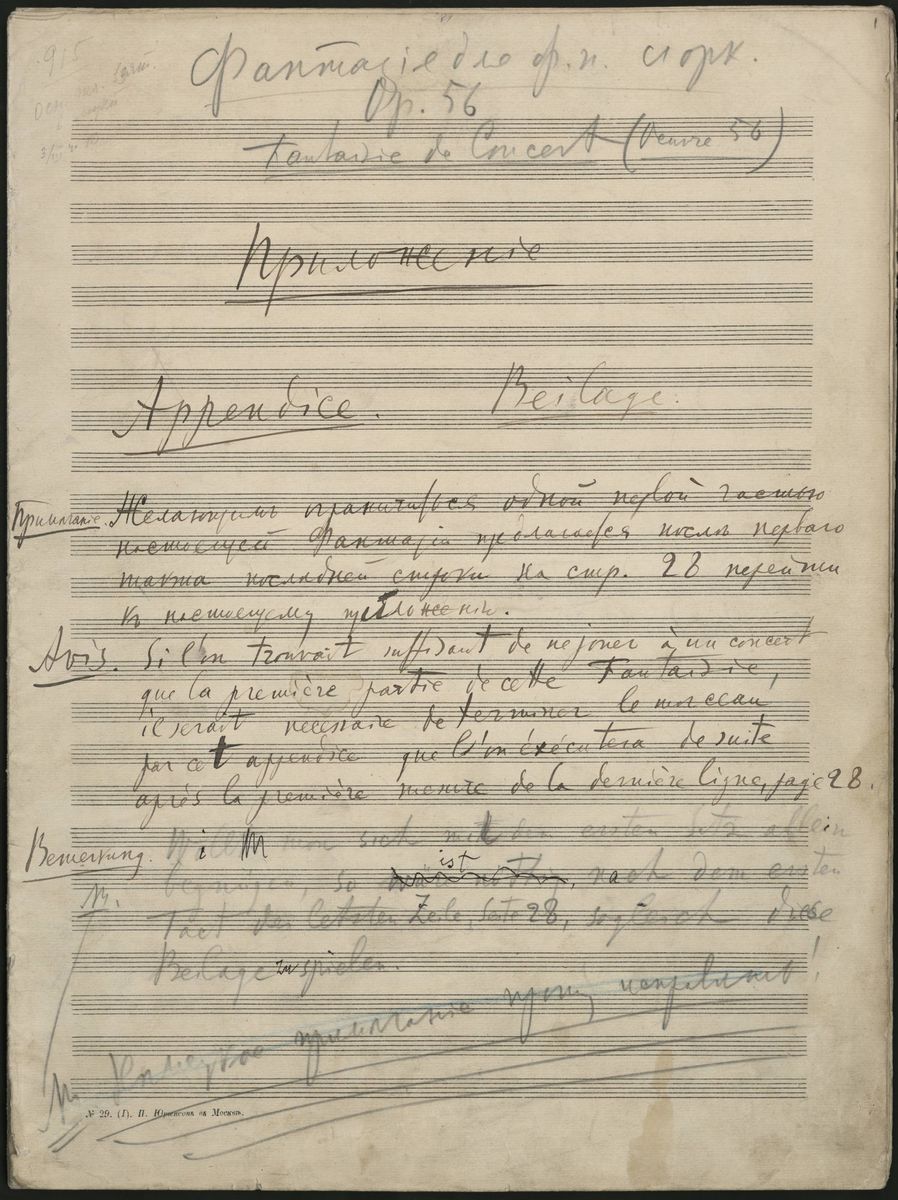 915
Фантазіе для ф.п. с орк.
Op. 56
Fantaisie de Concert (Oeuvre 56)
Приложеніе
Appendice. Beilage.
Примѣчаніе. Желающимъ ограничиться одной первой частью
настоящей Фантазіи предлагается послѣ перваго
такта послѣдней строки на стр. 28 перейти
къ настоящему приложенію.
Avis. Si l'on trouvait suffisant de ne jouer à un concert
que la première partie de cette Fantaisie,
il serait necessaire de terminer le morceau
par cet appendice que l'on éxécutera de suite
après la première mesure de la dernière ligne, page 28.
Bemerkung. Will man sich mit dem ersten Satz allein
ist
begnügen, so wäre nöthig, nach dem ersten
Tact der letzten Zeile, Seite 28, sogleich diese
Beilage zu spielen.
Нѣмецкое примѣчаніе прошу исправить!
№ 29. (I). П. Юргенсонъ въ Москвѣ.